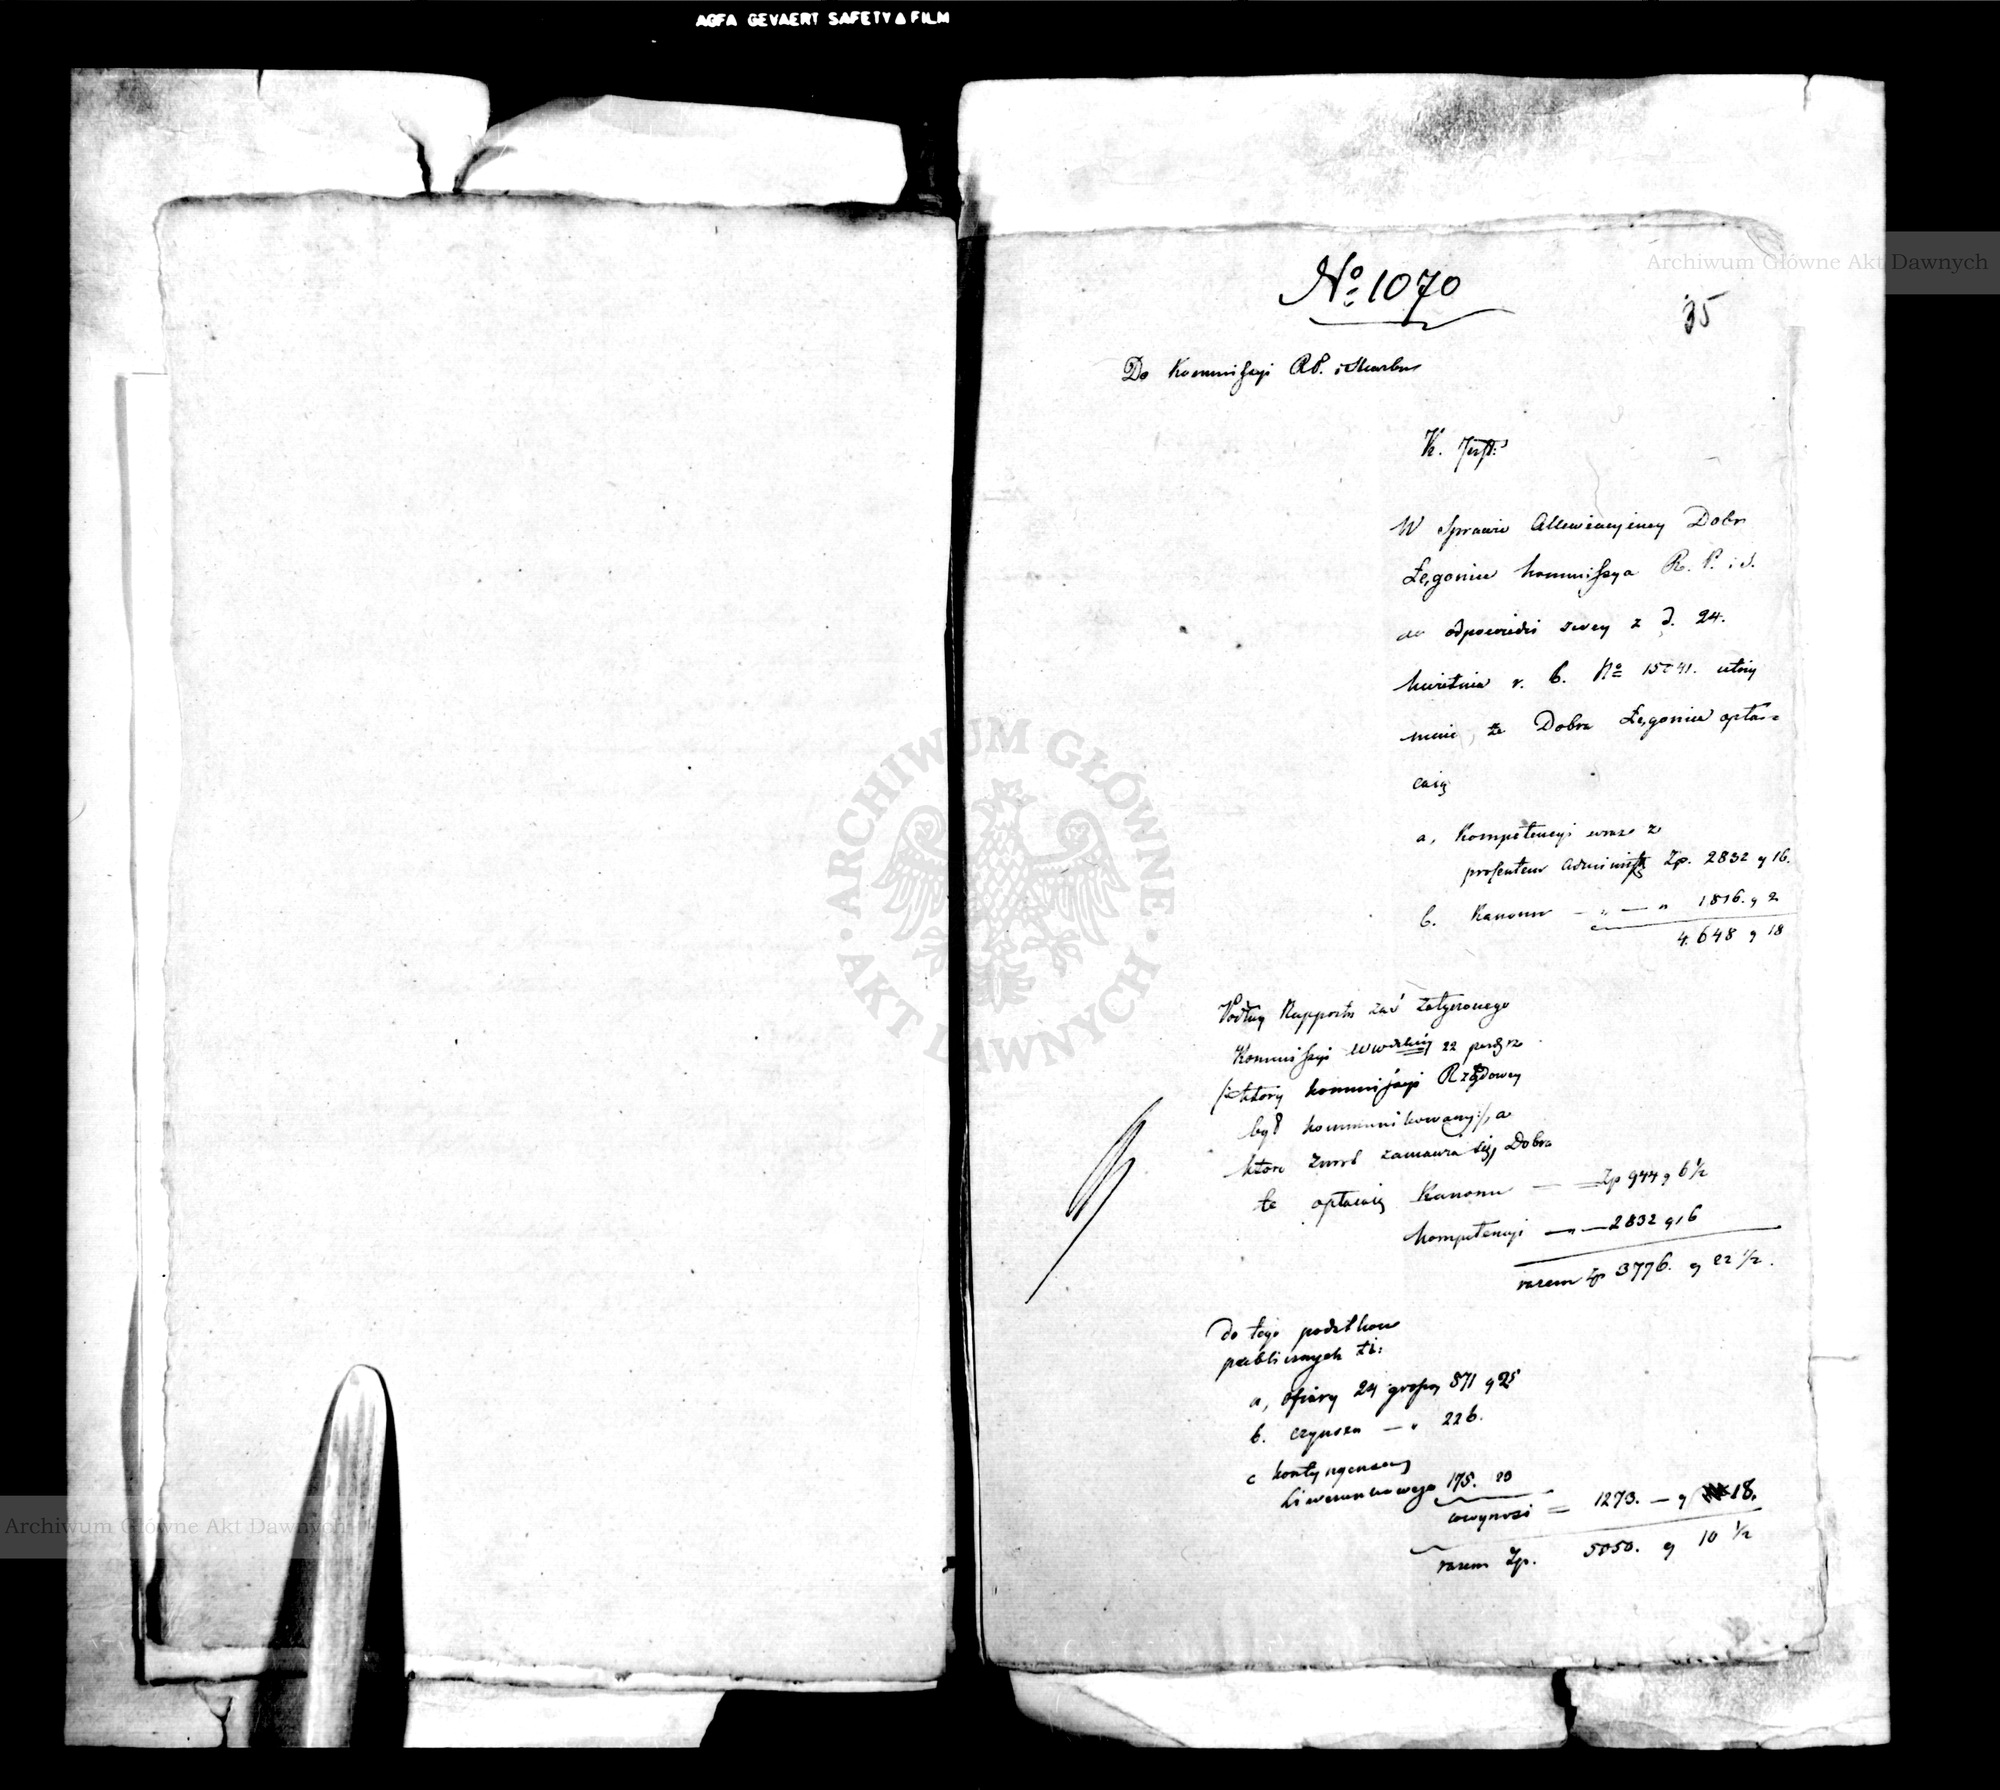 AGFA GEVAERT SAFETY FILM
Archiwum Główne Akt Dawnych
No 1070
35
Do Kommissyi RP. i Skarbu
K. Just:
W sprawie Allewiacyiney Dobr
Łęgonice kommissya R. P. i S.
odpowiedzi swey z d. 24.
kwietnia r. b. No 15
że Dobra Łęgonice opła=
caią
a, Kompetencyi wraz z
procentem Administr Zp. 2832 g 16.
b. Kanonu — " — " 1816. g 2
4.648 g 18
Podług Rapportu zaś
Kommissyi
/:ktory kommissyi Rządowey
był kommunikowany:/, a
Dobra
te opłacaią Kanonu — Zp 944 g 6 1/2
kompetencyi — " — 2832 g 16
razem Zp 3776. g 22 1/2.
do tego podatkow
publicznych
a, ofiary 24 groszy 871 g 28
b. czynszu — " 226.
c kontyngensu
liwerunkowego 175. 20
wynosi = 1273. — g 18.
razem Zp. 5050. g 10 1/2
ARCHIWUM GŁÓWNE
AKT DAWNYCH
Archiwum Główne Akt Dawnych